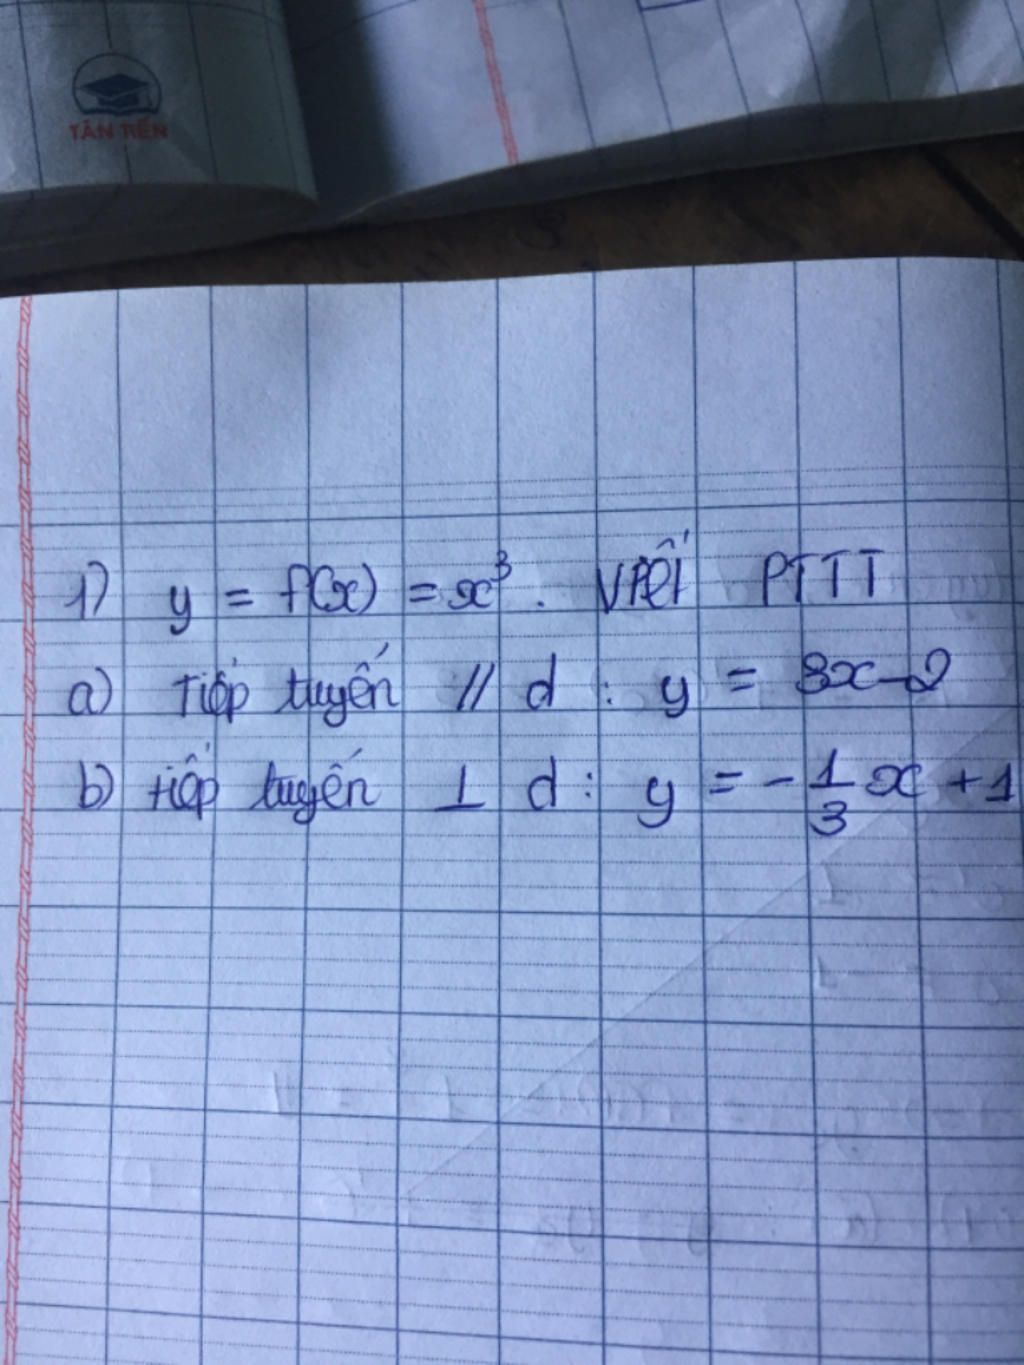 TÂN TIẾN
1) y = f(x) = x³. Viết PTTT
a) Tiếp tuyến // d : y = 3x-2
b) tiếp tuyến ⊥ d : y = -1/3 x + 1